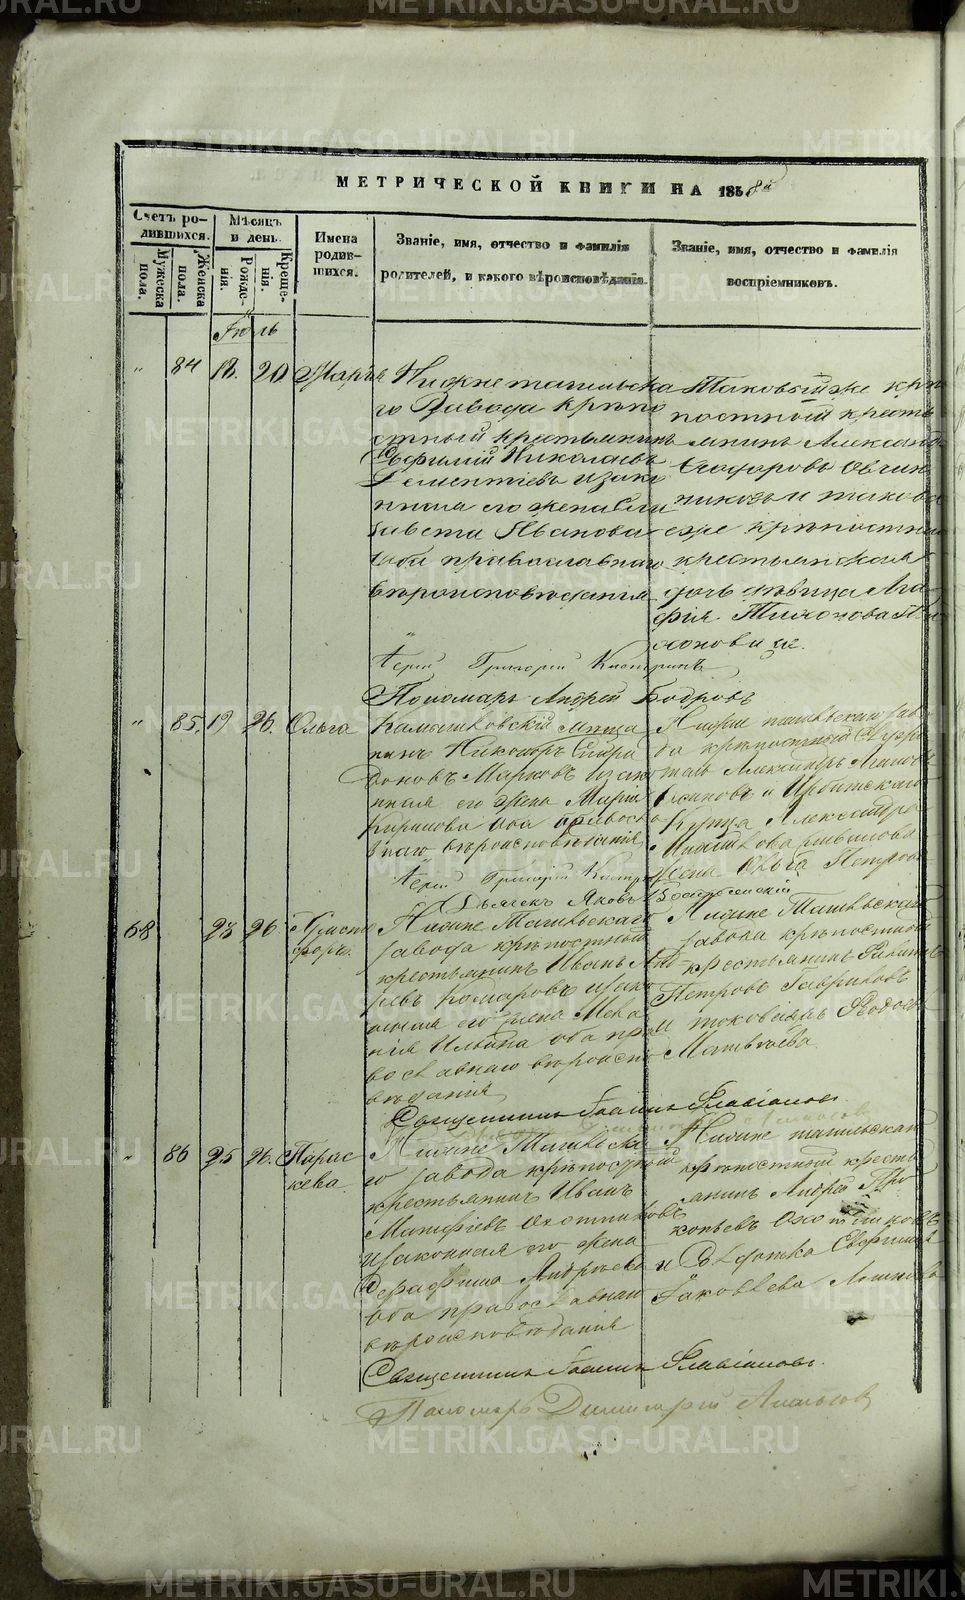 МЕТРИЧЕСКОЙ КНИГИ НА 1858й
Счетъ ро-
дившихся.
Мужеска
пола.
Женска
пола.
Мѣсяцъ
и день.
Рожде-
нія.
Креще-
нія.
Имена
родив-
шихся.
Званіе, имя, отчество и фамилія
родителей, и какого вѣроисповѣданія.
Званіе, имя, отчество и фамилія
воспріемниковъ.
Іюль
" 84 18. 20 Марья
Нижнетагильска
го Завода крѣпо
стный крестьянинъ
Николаевъ
Дементьевъ и зако
нная его жена Ели
завета Иванова
оба православнаго
вѣроисповѣданія
Таковый же крѣ
постный кресть
янинъ Александ
Ѳеодоровъ Овчин
никовъ и такова
я же крѣпостная
крестьянская
дочь дѣвица Ага
фія Тимоѳова
Іерей Григорій Кастринъ
Пономарь Андрей Бодровъ
" 85. 19 26. Ольга
Камышловскій мѣща
нинъ Никаноръ Спири
доновъ Марковъ и зако
нная его жена Марія
Кирилова оба правосла
внаго вѣроисповѣданія
Нижне тагильскаго зав
да крѣпостный Слу
Александръ
и Ирбитскаго
Купца Александра
жена Ольга Петрова
Іерей Григорій Кастринъ
Дьячекъ Яковъ
68 23 26 Христо
форъ.
Нижне Тагильскаго
завода крѣпостный
крестьянинъ Иванъ Анд
реевъ Комаровъ и зако
нная его жена Мела
нія Ильина оба пра
вославнаго вѣроиспо
вѣданія
Нижне Тагильскаго
завода крѣпостный
крестьянинъ
Петровъ Гавриловъ
и таковаяжъ Ѳедос
Матвѣева
Священникъ Іоаннъ Флавіановъ
" 86 25 26. Парас
кева
Нижне Тагильска
го завода крѣпостной
крестьянинъ Иванъ
Матфіевъ Охотниковъ
и законная его жена
Серафима Андреева
оба православнаго
вѣроисповѣданія
Нижне тагильскаго
крѣпостный кресть
янинъ Андрей Про
копьевъ Охотниковъ
и
Яковлева
Священникъ Іоаннъ Флавіановъ.
Пономарь Димитрій
METRIKI.GASO-URAL.RU